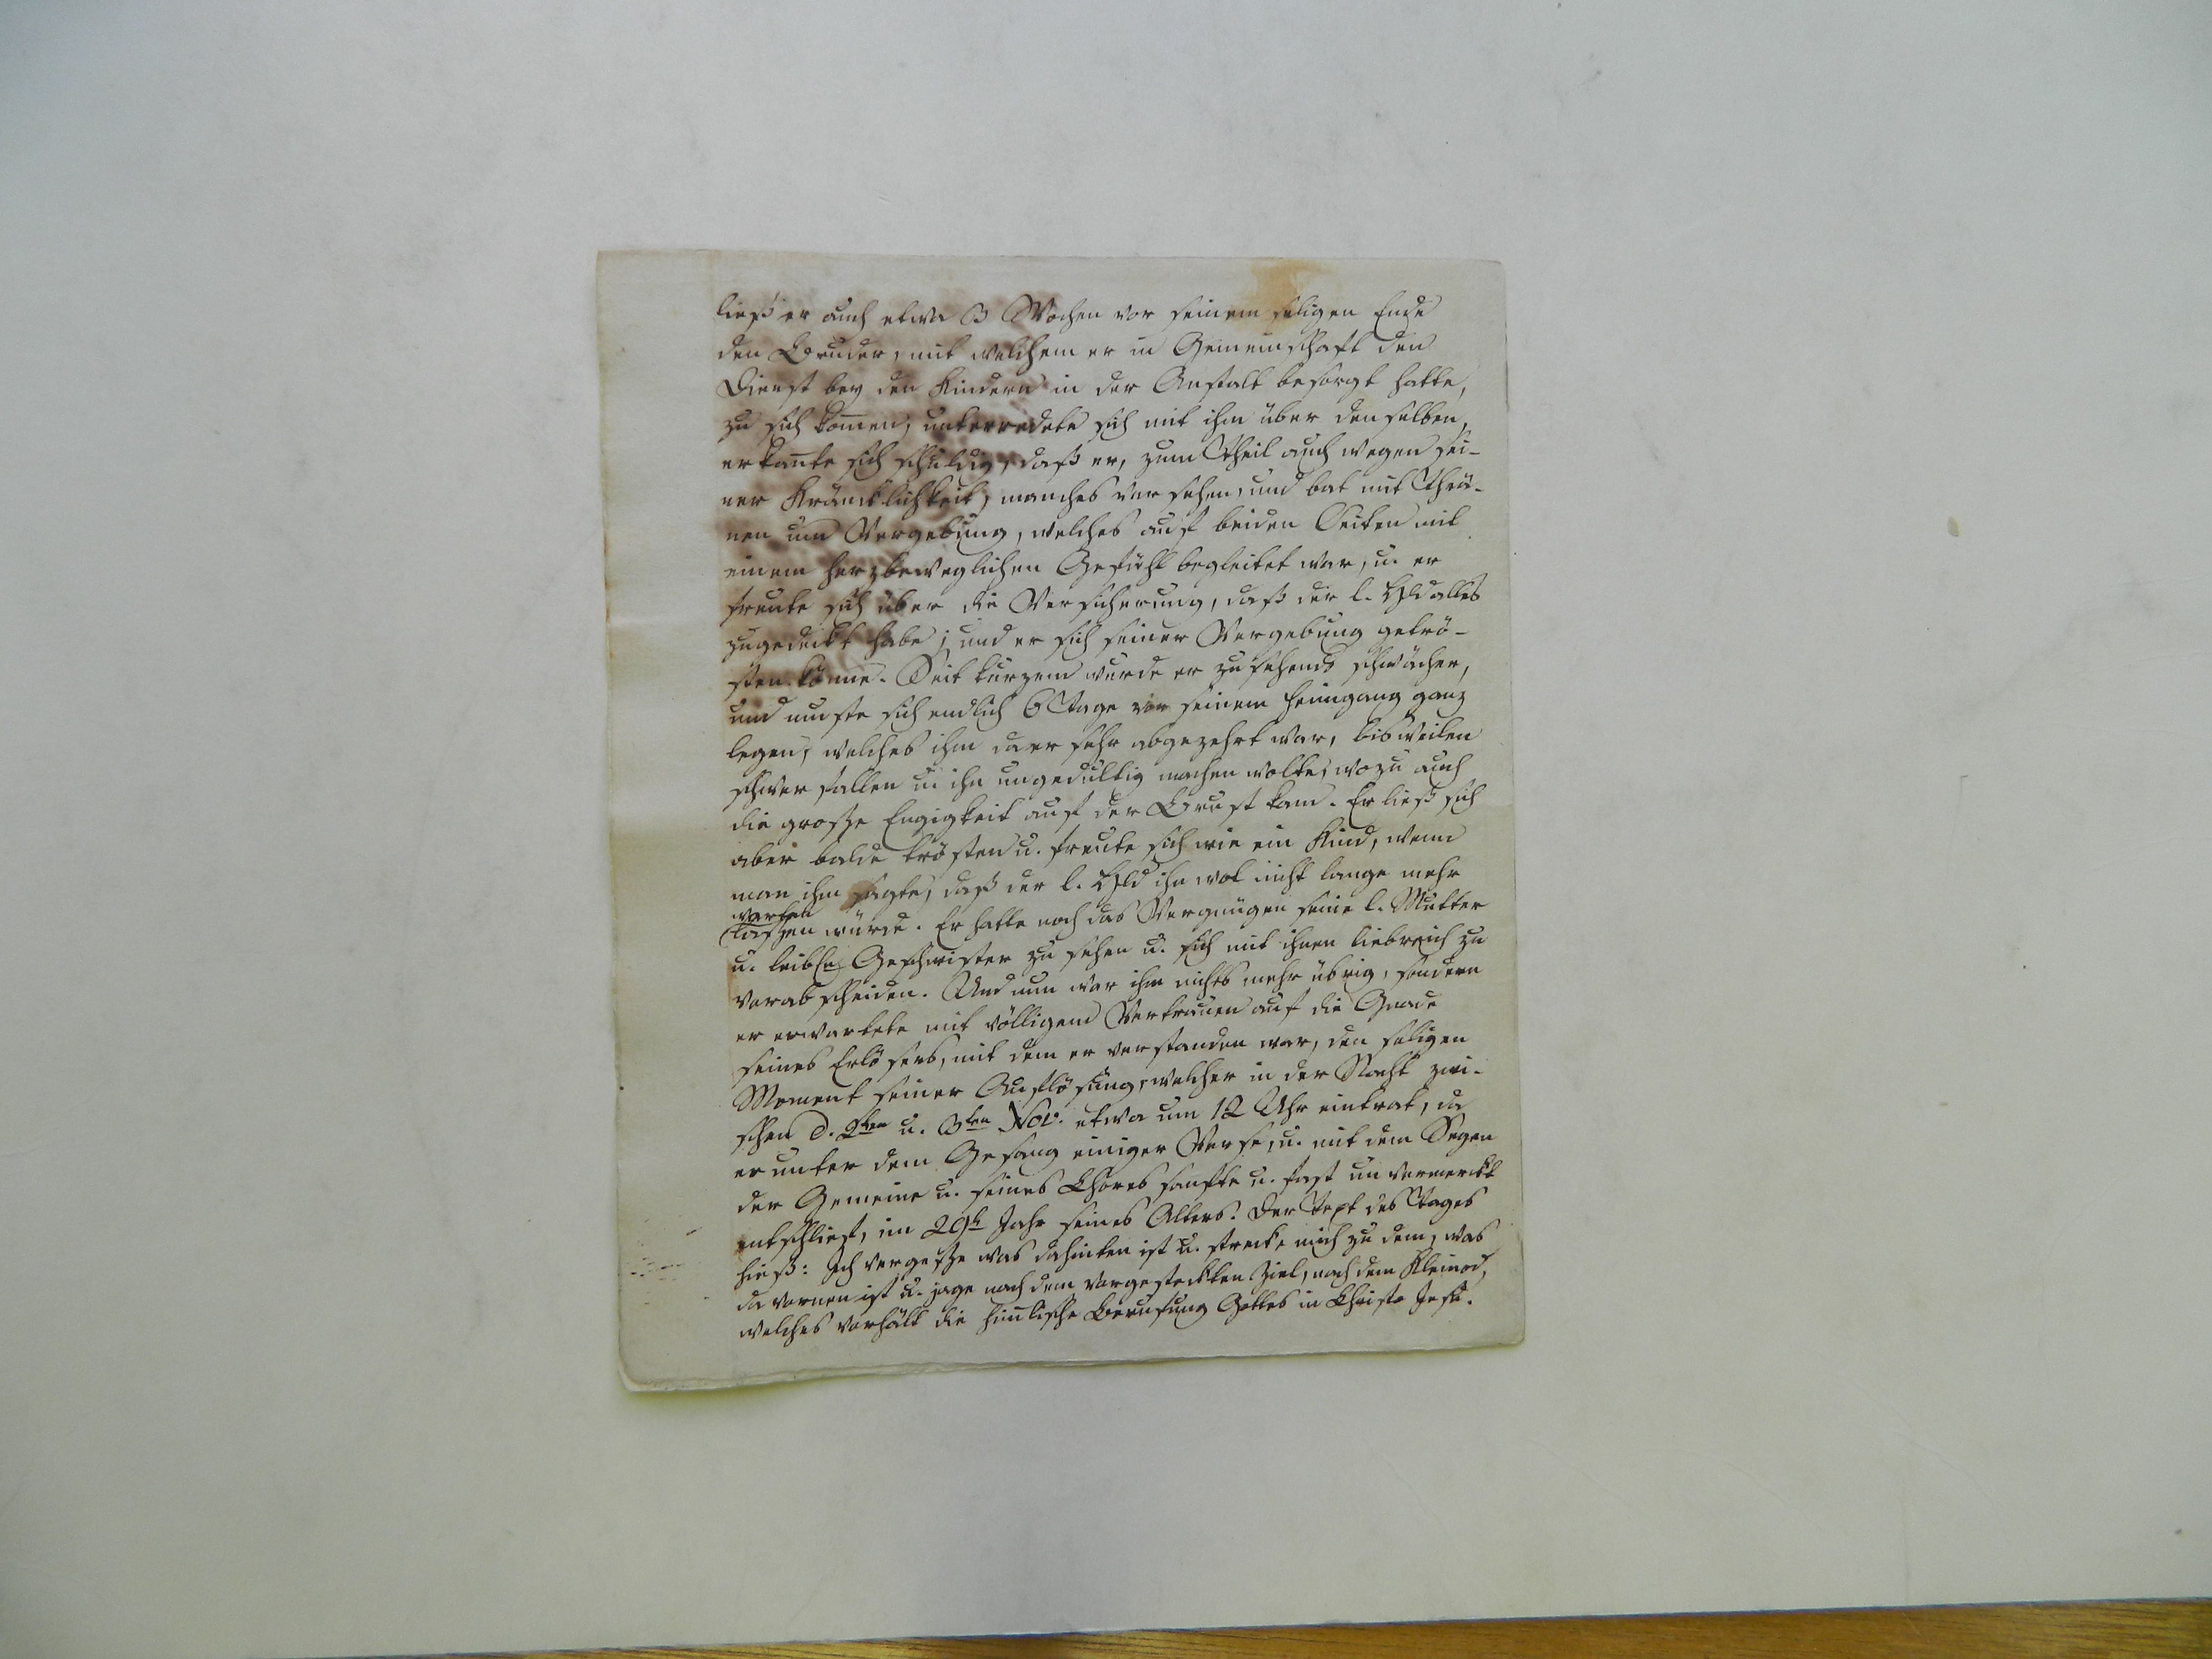 ließ er auch etwa 3 Wochen vor seinem seligen Ende
den Bruder, mit welchem er in Gemeinschaft den
Dienst bey den Kindern in der Anstalt besorgt hatte,
zu sich kom̄en, unterredete sich mit ihm über denselben,
erkan̄te sich schuldig, daß er, zum Theil auch wegen sei-
ner Kräncklichkeit, manches versehen, und bat mit Thrä-
nen um Vergebung, welches auf beiden Seiten mit
einem herzbeweglichen Gefühl begleitet war, u. er
freute sich über die Versicherung, daß der l. Hld alles
zugedeckt habe, und er sich seiner Vergebung getrö-
sten könne. Seit kurzem wurde er zusehends schwächer,
und muste sich endlich 6 Tage vor seinem Heimgang ganz
legen, welches ihm da er sehr abgezehrt war, bisweilen
schwer fallen u. ihn ungedultig machen wolte, wozu auch
die große Engigkeit auf der Brust kam. Er ließ sich
aber balde trösten u. freute sich wie ein Kind, wenn
man ihm sagte, daß der l. Hld ihn wol nicht lange mehr
warten
laßen würde. Er hatte noch das Vergnügen seine l. Mutter
u. leibl. Geschwister zu sehen u. sich mit ihnen liebreich zu
verabscheiden. Und nun war ihm nichts mehr übrig, sondern
er erwartete mit völligem Vertrauen auf die Gnade
seines Erlösers, mit dem er verstanden war, den seligen
Moment seiner Auflösung, welcher in der Nacht zwi-
schen d. 2ten u. 3ten Nov. etwa um 12 Uhr eintrat, da
er unter dem Gesang einiger Verse, u. mit dem Segen
der Gemeine u. seines Chores sanfte u. fast unvermerckt
entschlief, im 29t Jahr seines Alters. Der Text des Tages
hieß: Ich vergeße was dahinten ist u. strecke mich zu dem, was
da vornen ist u. jage nach dem vorgesteckten Ziel, nach dem Kleinod,
welches vorhält die him̄lische Berufung Gottes in Christo Jesu.